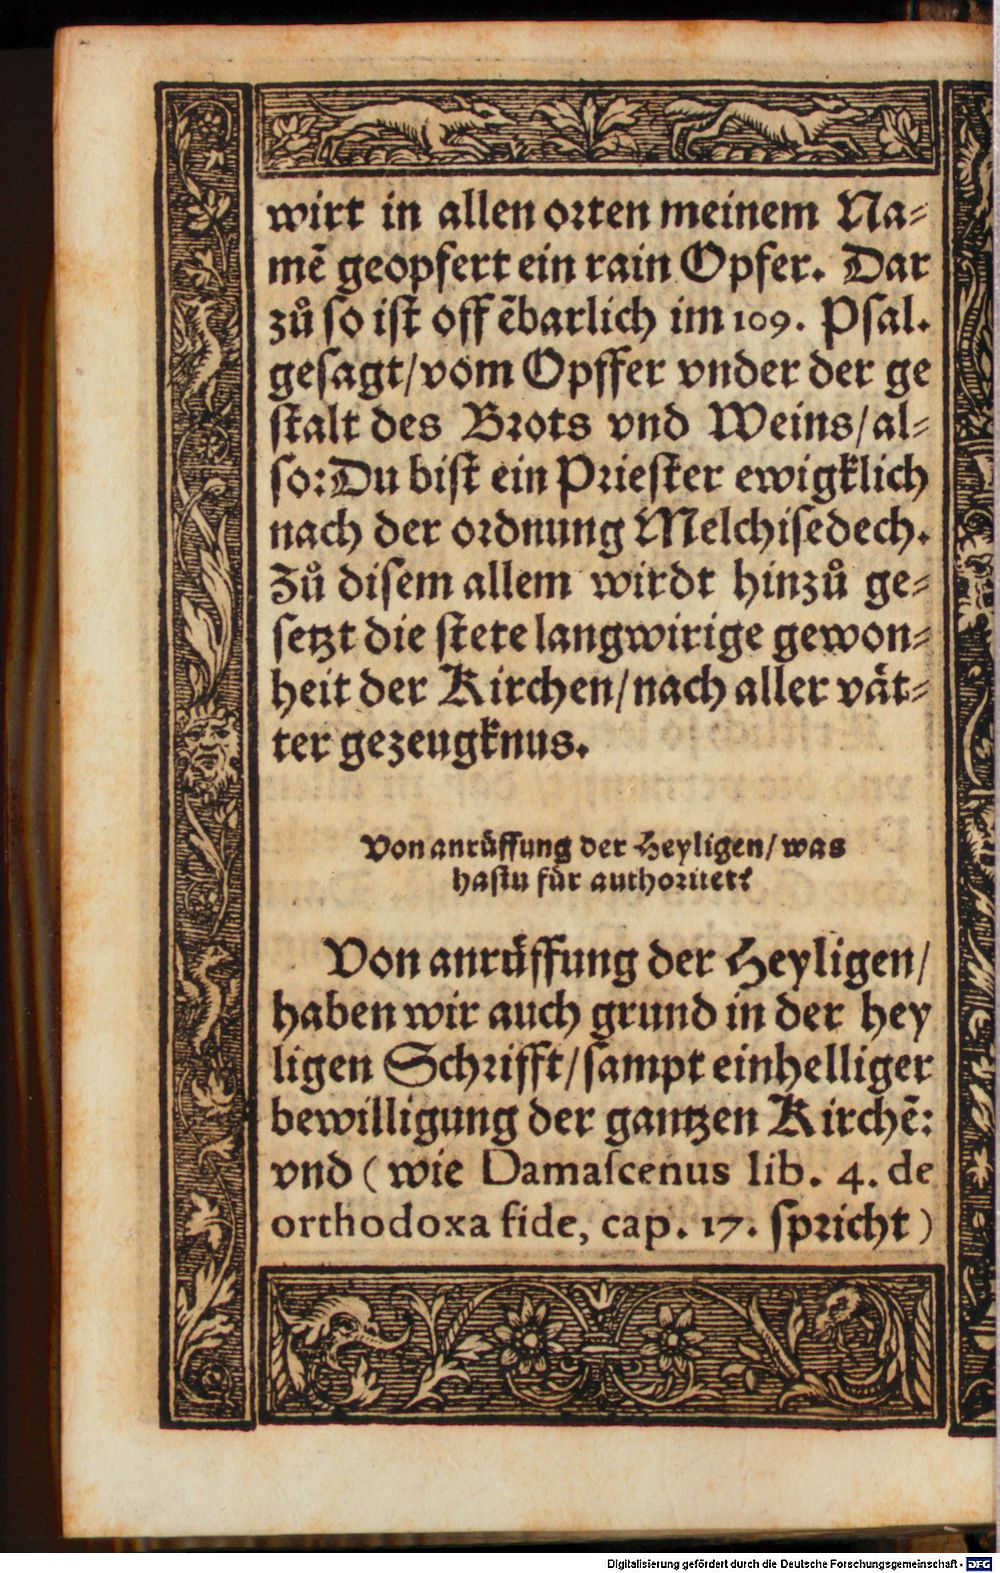 wirt in allen orten meinem Na⸗
mẽ geopfert ein rain Opfer. Dar
zů so ist off ẽbarlich im 109. Psal.
gesagt/vom Opffer vnder der ge
stalt des Brots vnd Weins/al⸗
so: Du bist ein Priester ewigklich
nach der ordnung Melchisedech.
Zů disem allem wirdt hinzů ge⸗
setzt die stete langwirige gewon⸗
heit der Kirchen/nach aller vät⸗
ter gezeugknus.
Von anrüffung der Heyligen/ was
hastu für authoritet?
Von anrüffung der Heyligen/
haben wir auch grund in der hey
ligen Schrifft/sampt einhelliger
bewilligung der gantzen Kirchẽ:
vnd ( wie Damascenus lib. 4. de
orthodoxa fide, cap. 17. spricht )
Digitalisierung gefördert durch die Deutsche Forschungsgemeinschaft - DFG